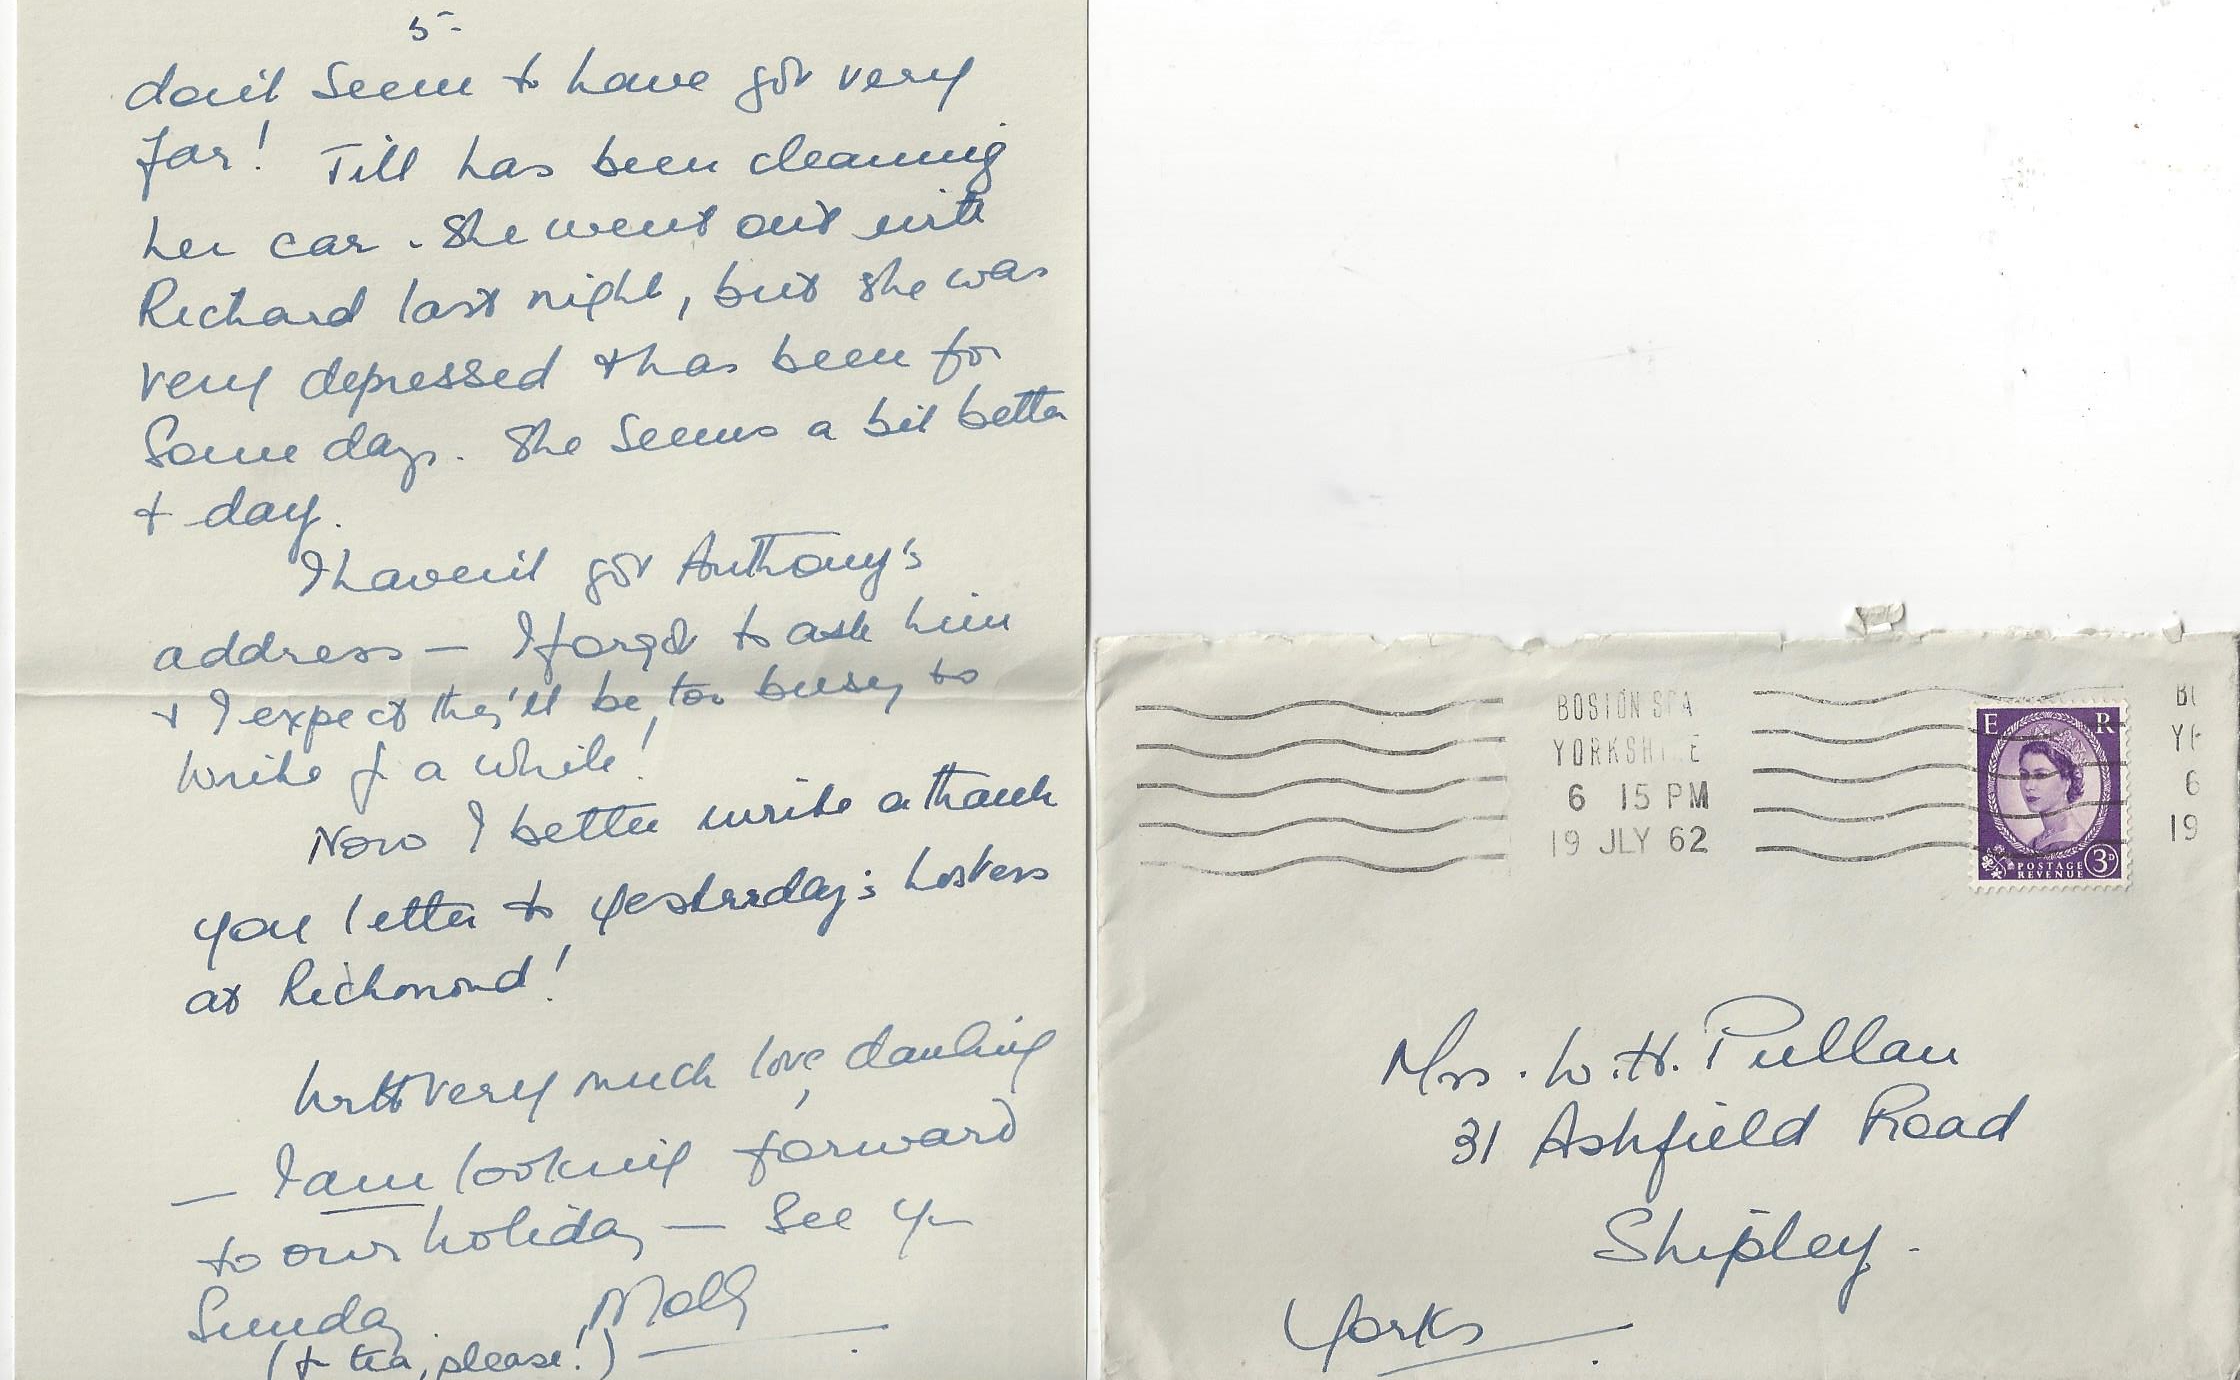 5-
don't seem to have got very
far! Till has been cleaning
her car. She went out with
Richard last night, but she was
very depressed & has been for
some days. She seems a bit better
+ day.
I haven't got Anthony's
address — I forgot to ask him
& I expect they'll be too busy to
write for a while!
Now I better write a thank
you letter to yesterday's hostess
at Richmond!
With very much love, darling
— I am looking forward
to our holiday — See you
Sunday. Molly
(& tea, please!)
BOSTON SPA
YORKSHIRE
6 15 PM
19 JLY 62
E R
POSTAGE
REVENUE
3D
BO
YO
6
19
Mrs. W. H. Pullan
31 Ashfield Road
Shipley.
Yorks